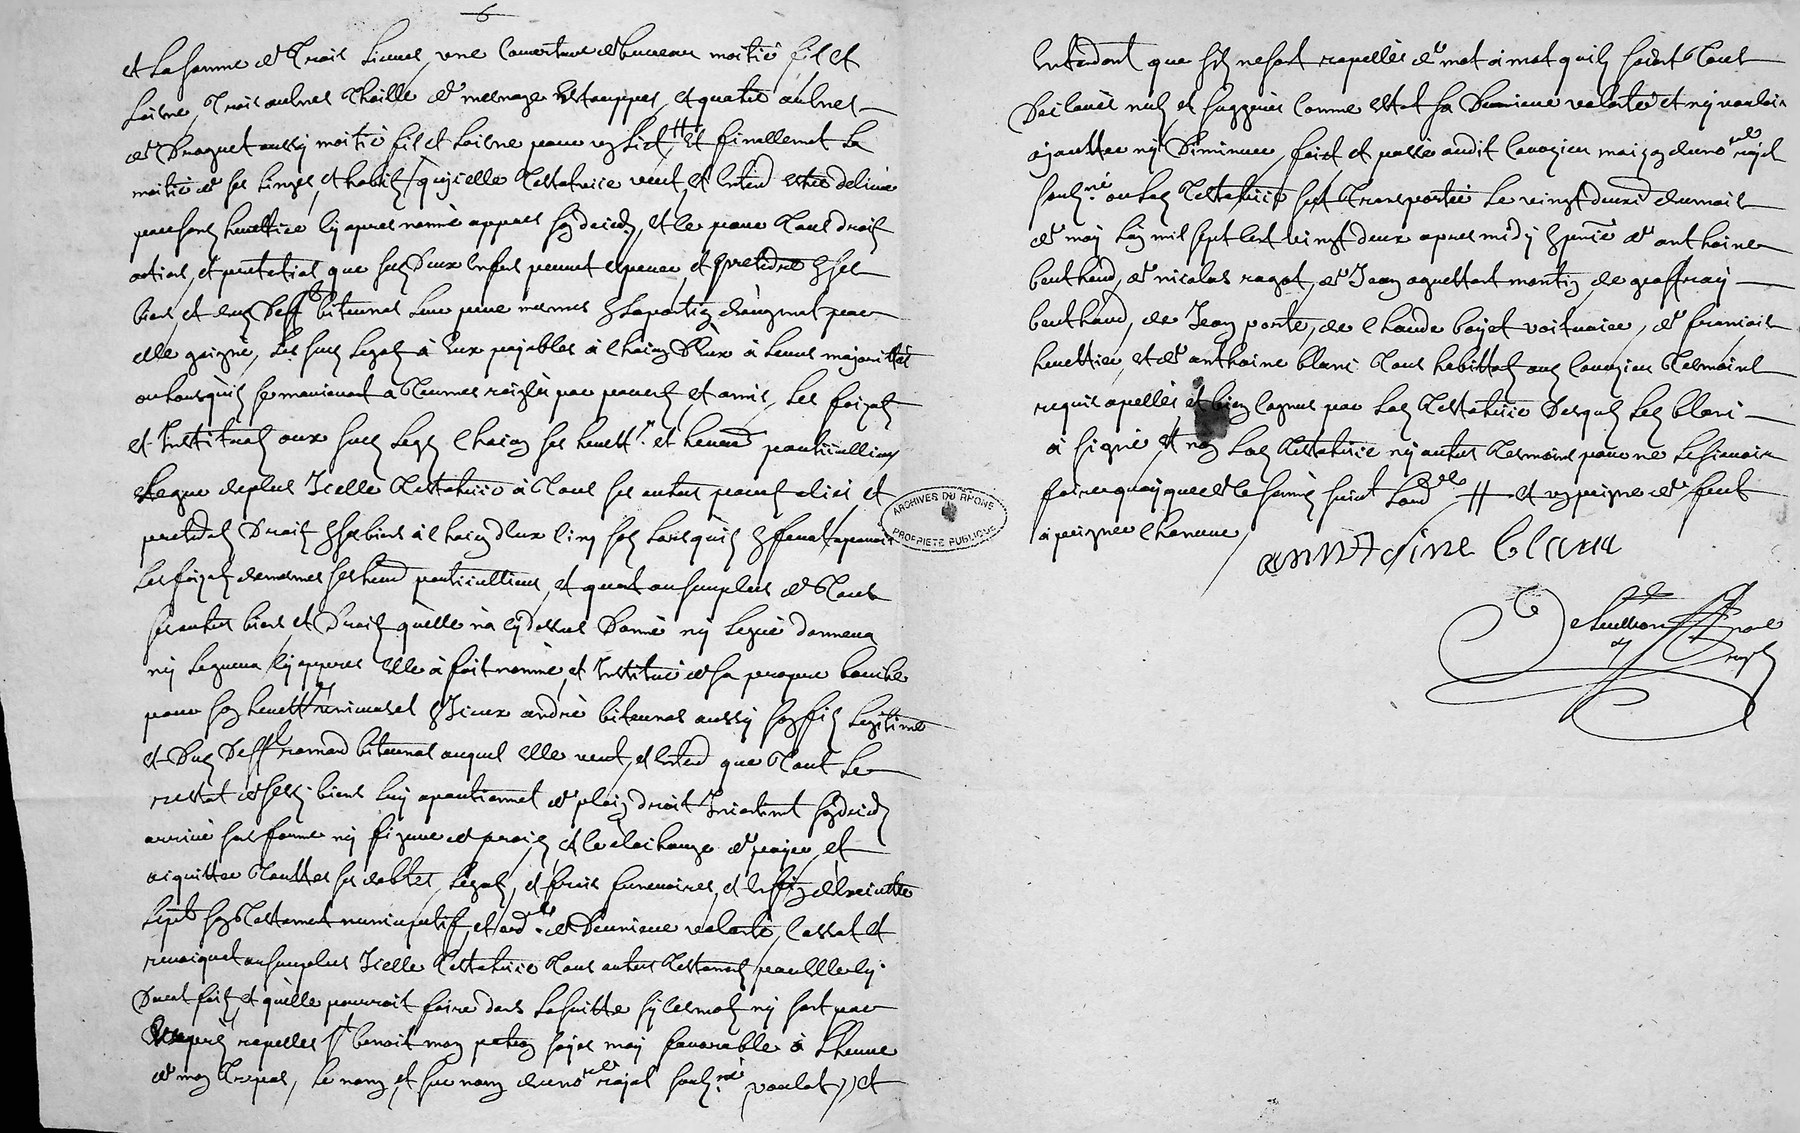 6
et la somme de Trois Livres, une Couverture de bureau moitié fil et
Laisne, Trois aulnes Thoille de mesnage estouppes, et quatre aulnes
de Droguet aussy moitié fil et Laisne pour un lict, # et finallement la
moitié de ses Linges, et habits, qu'icelle Testatrice veut, et entend estre delivré
par son herittier cy apres nommé appres son deceds, et ce pour Tous droits
actions, et pretentions que ses Deux enfans peuvent esperer, et pretendre en ses
biens, et dud Deff. biternas leur pere mesmes en la portion d'augment par
elle gaigné, les susd Legats à Eux payables à chacun d'Eux à Leurs majorittés
ou Lorsquils se marieront à Termes raiglés par parents, et amis, les faizant
et Instituant aux susd Legs chacun ses heritt.rs et heired particulliers
Legue deplus Icelle Testatrice à Tous ses autres parents amis et
pretendants Droits en ses biens à chacun d'Eux Cinq sols Lorsquils en feront aparoir
Les faizant demesmes ses heired particulliers, et quant au surplus de Tous
ses autres biens, et Droits qu'elle n'a cy dessus Donné ny Legué donnera
ny Leguera cy appres Elle à fait nommé, et Institué de sa propre bouche
pour son heritt. universel Sieur andré biternas aussy son fils Legitime
et Dud Deff. biternas auquel elle veut, et entend que Tout Le
restat de sesd. biens Luy apartiennent de plain droit Incontinent son deceds
arrivé sans forme ny figure de procès, et ce à la charge de payer, et
acquitter Touttes ses debtes, Legats, et frais funeraires, et enfin d'executter
le pnt son Testament nuncupatif, et ord.ce de Derniere volonté, Cassant et
revoquant au surplus Icelle Testatrice Tous autres Testaments par Elle cy
Devant faits, et qu'elle pourroit faire dans la suitte sy ces mots ny sont par
Exprès rapellés St benoit mon patron soyes moy favorable à L'heure
de mon Trepas, Le nom, et surnom du no.re royal sousig.né voulant, et
Entendant que s'ils ne sont rapellés de mot à mot qu'ils soient Tous
Declarés nuls et suggerés Comme estant sa Derniere volonté et n'y vouloir
ajoutter ny Diminuer, faict et passé audit Couzieu maison du no.re royal
sousig.né ou Lad Testatrice s'est Transportée Le vingt deux du mois
de may L'an mil sept Cent vingt deux apres midy en pnce de anthoine
berthaud, de nicolas ragot, de Jean aguettant montin, de geoffray
berthaud, de Jean porte, de Claude boyet voiturier, de francois
herittier, et de anthoine blanc Tous habittants aud Couzieu Tesmoins
requis apellés et bien Cognus par Lad Testatrice Desquels Led blanc
à signé et non Lad Testatrice ny autres Tesmoins pour ne le scavoir
faire quoyque de ce sommés suivant L'ord.ce # et un peigne de fert
à peigner Chanvre,
annthoine blanc
ARCHIVES DU RHONE
PROPRIETE PUBLIQUE